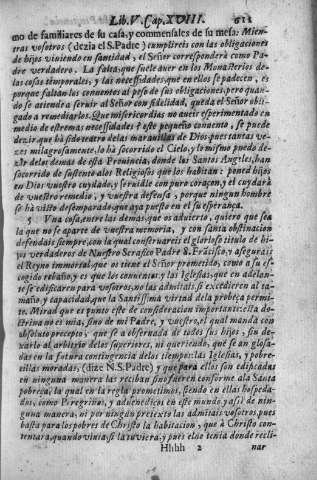 Lib. V. Cap. XVIII. 611
mo de familiares de su casa, y commensales de su mesa: Mien-
tras vosotros (dezia el S. Padre) cumplireis con las obligaciones
de hijos viviendo en santidad, el Señor correspondera como Pa-
dre verdadero. La falta, que suele aver en los Monasterios de
las cosas temporales, y las necessidades, que en ellos se padecen, es
porque faltan los conventos al peso de sus obligaciones, pero quan-
do se atiende a servir al Señor con fidelidad, queda el Señor obli-
gado a remediarlos. Que misericordias no aveis esperimentado en
medio de estremas necessidades? este pequeño convento, se puede
dezir, que ha sido teatro de las maravillas de Dios: pues tantas ve-
ces milagrosamente, lo ha socorrido el Cielo, y lo mismo puedo de-
zir de las demas de esta Provincia, donde los Santos Angeles, han
socorrido de sustento a los Religiosos que los habitan: poned hijos
en Dios vuestro cuydado, y servidle con puro coraçon, y el cuydarà
de vuestro remedio, y vuestra defensa, porque ningun hombre
se ha visto desamparado, que aya puesto en el su esperança.
5 Una cosa, entre las demas, que os advierto, quiero que sea
la que no se aparte de vuestra memoria, y con santa obstinacion
defendais siempre, con la qual conservareis el glorioso titulo de hi-
jos verdaderos de Nuestro Serafico Padre S. Francisco, y assegurais
el Reyno immortal, que os tiene el Señor prometido, como a su es-
cogido rebaño, y es que los conventos, y las Iglesias, que en adelan-
te se edificaren para vosotros, no las admitais, si excedieren al ta-
maño y capacidad, que la Santissima virtud de la pobreça permi-
te. Mirad que es punto este de consideracion importante: esta do-
ctrina no es mia, sino de mi Padre, y vuestro, el qual manda con
absoluto precepto, que sea observada de todos sus hijos, sin de-
xarlo al arbitrio de los superiores, ni queriendo, que se an glosa-
das en la futura contingencia de los tiempos: las Iglesias, y pobre-
zillas moradas, (dize N. S. Padre) y que para ellos son edificadas
en ninguna manera las reciban sino fueren conforme a la Santa
pobreza, la qual en la regla prometimos, siendo en ellas hospeda-
dos, como Peregrinos, y advenedicos en este mundo, y assi de nin-
guna manera, ni por ningun pretexto las admitais vosotros, pues
basta para los pobres de Christo la habitacion, que à Christo con-
tentara, quando viviasi la tuviera, y pues el no tenia donde recli-
Hhhh 2 nar